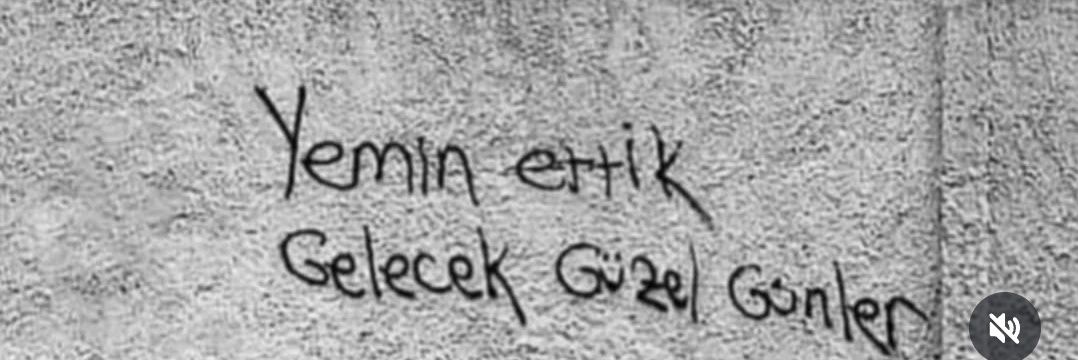 Yemin ettik
Gelecek Güzel Günler